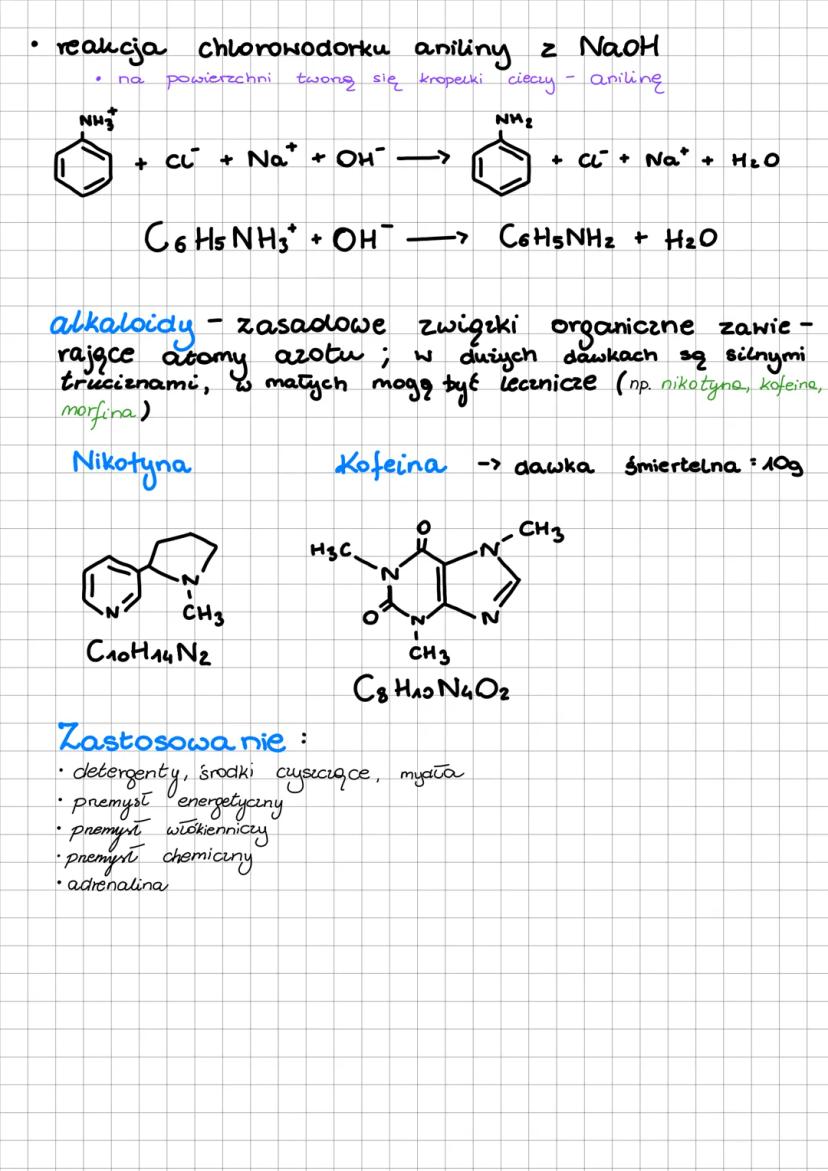 • reakcja chlorowodorku aniliny z NaOH
• na powierzchni tworzą się kropelki cieczy - anilinę
NH₃⁺ NH₂
+ Cl⁻ + Na⁺ + OH⁻ ⟶ + Cl⁻ + Na⁺ + H₂O
C₆H₅NH₃⁺ + OH⁻ ⟶ C₆H₅NH₂ + H₂O
alkaloidy - zasadowe związki organiczne zawie-
rające atomy azotu ; w dużych dawkach są silnymi
truciznami, w małych mogą być lecznicze (np. nikotyna, kofeina,
morfina)
Nikotyna Kofeina -> dawka śmiertelna = 10g
N N CH₃
H₃C N O O N CH₃ N N CH₃
C₁₀H₁₄N₂
C₈H₁₀N₄O₂
Zastosowanie :
• detergenty, środki czyszczące, mydła
• przemysł energetyczny
• przemysł włókienniczy
• przemysł chemiczny
• adrenalina